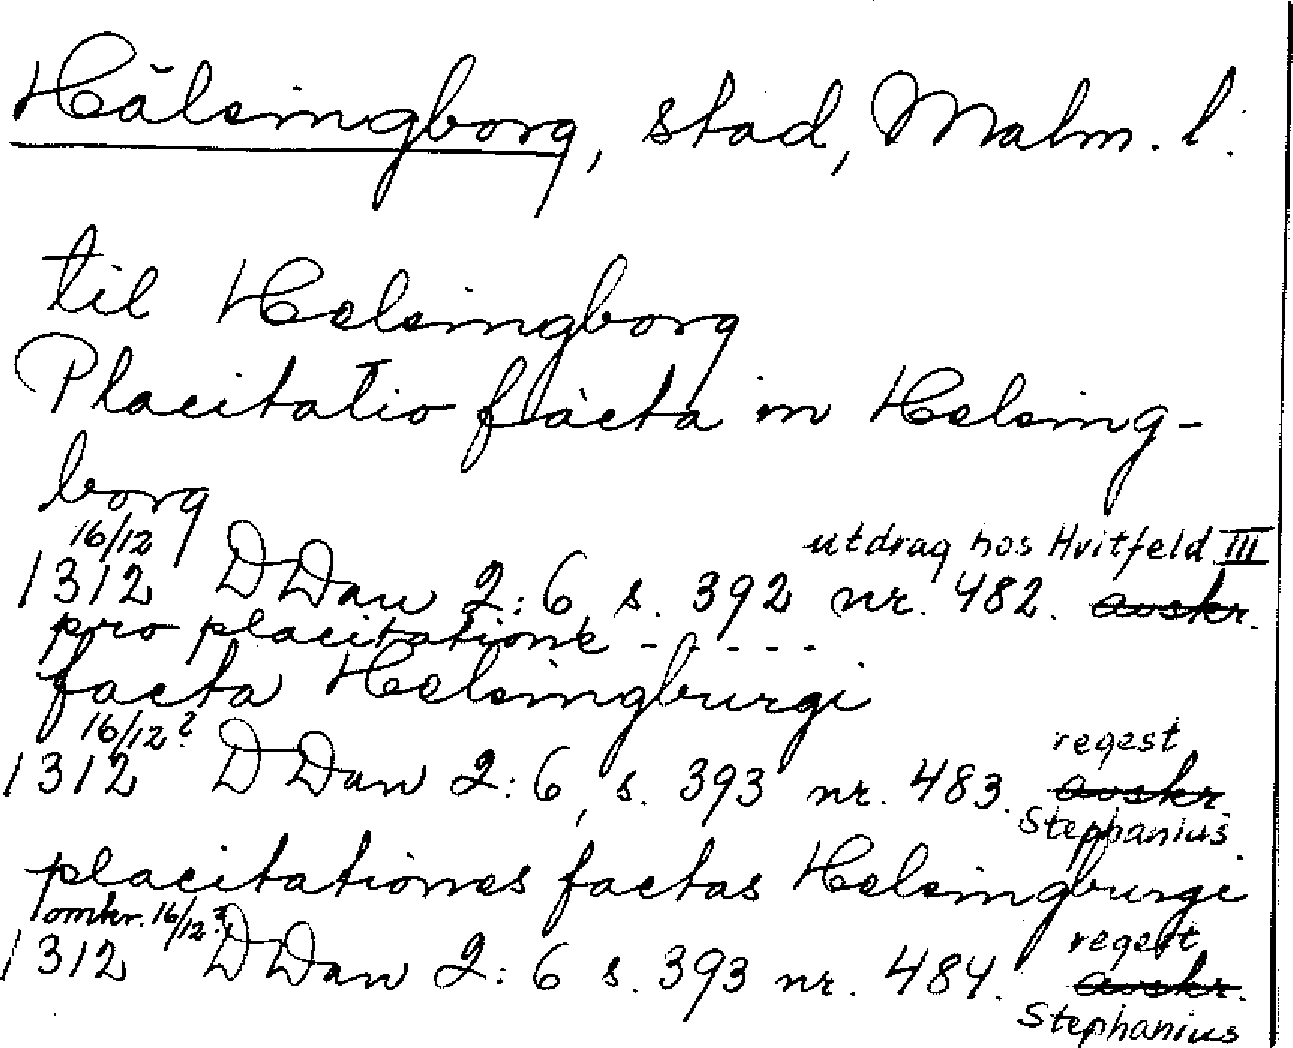 Hälsingborg, stad, Malm. l.
til Helsingborg
Placitatio facta in Helsing-
borg
16/12 utdrag hos Hvitfeld III
1312 DDan 2:6 s. 392 nr. 482. avskr.
pro placitatione - - - - -
facta Helsingburgi
16/12? regest
1312 DDan 2:6, s. 393 nr. 483. avskr.
Stephanius
placitationes factas Helsingburgi
omkr. 16/12?, regest
1312 DDan 2:6 s. 393 nr. 484. avskr.
Stephanius